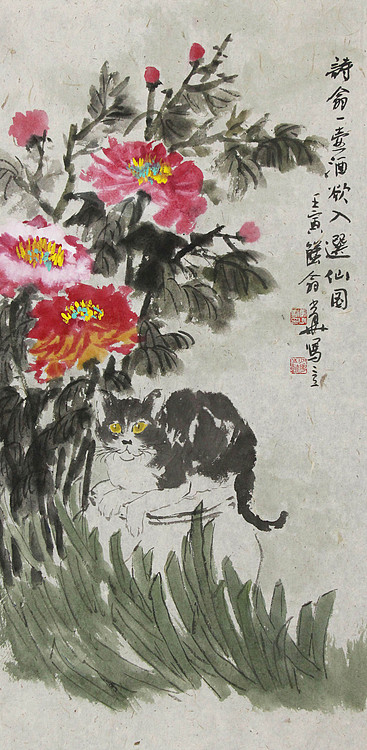 詩翁一壺酒欲入選仙図
壬寅 翁 寫